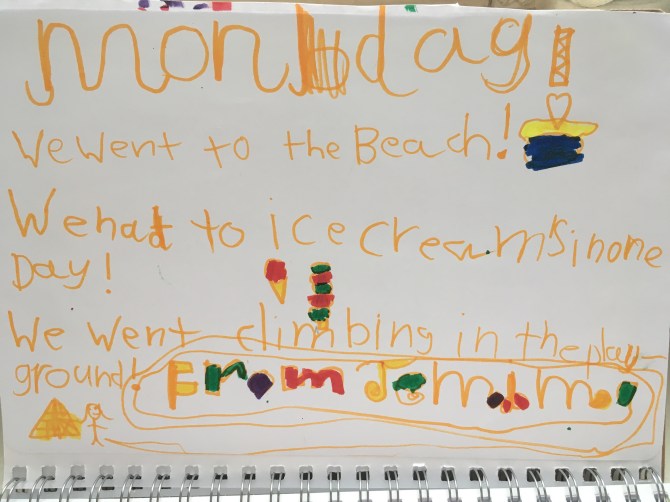 monday!
We went to the Beach!
We had to ice creams in one
Day!
We went climbing in the play-
ground! From Jemima!